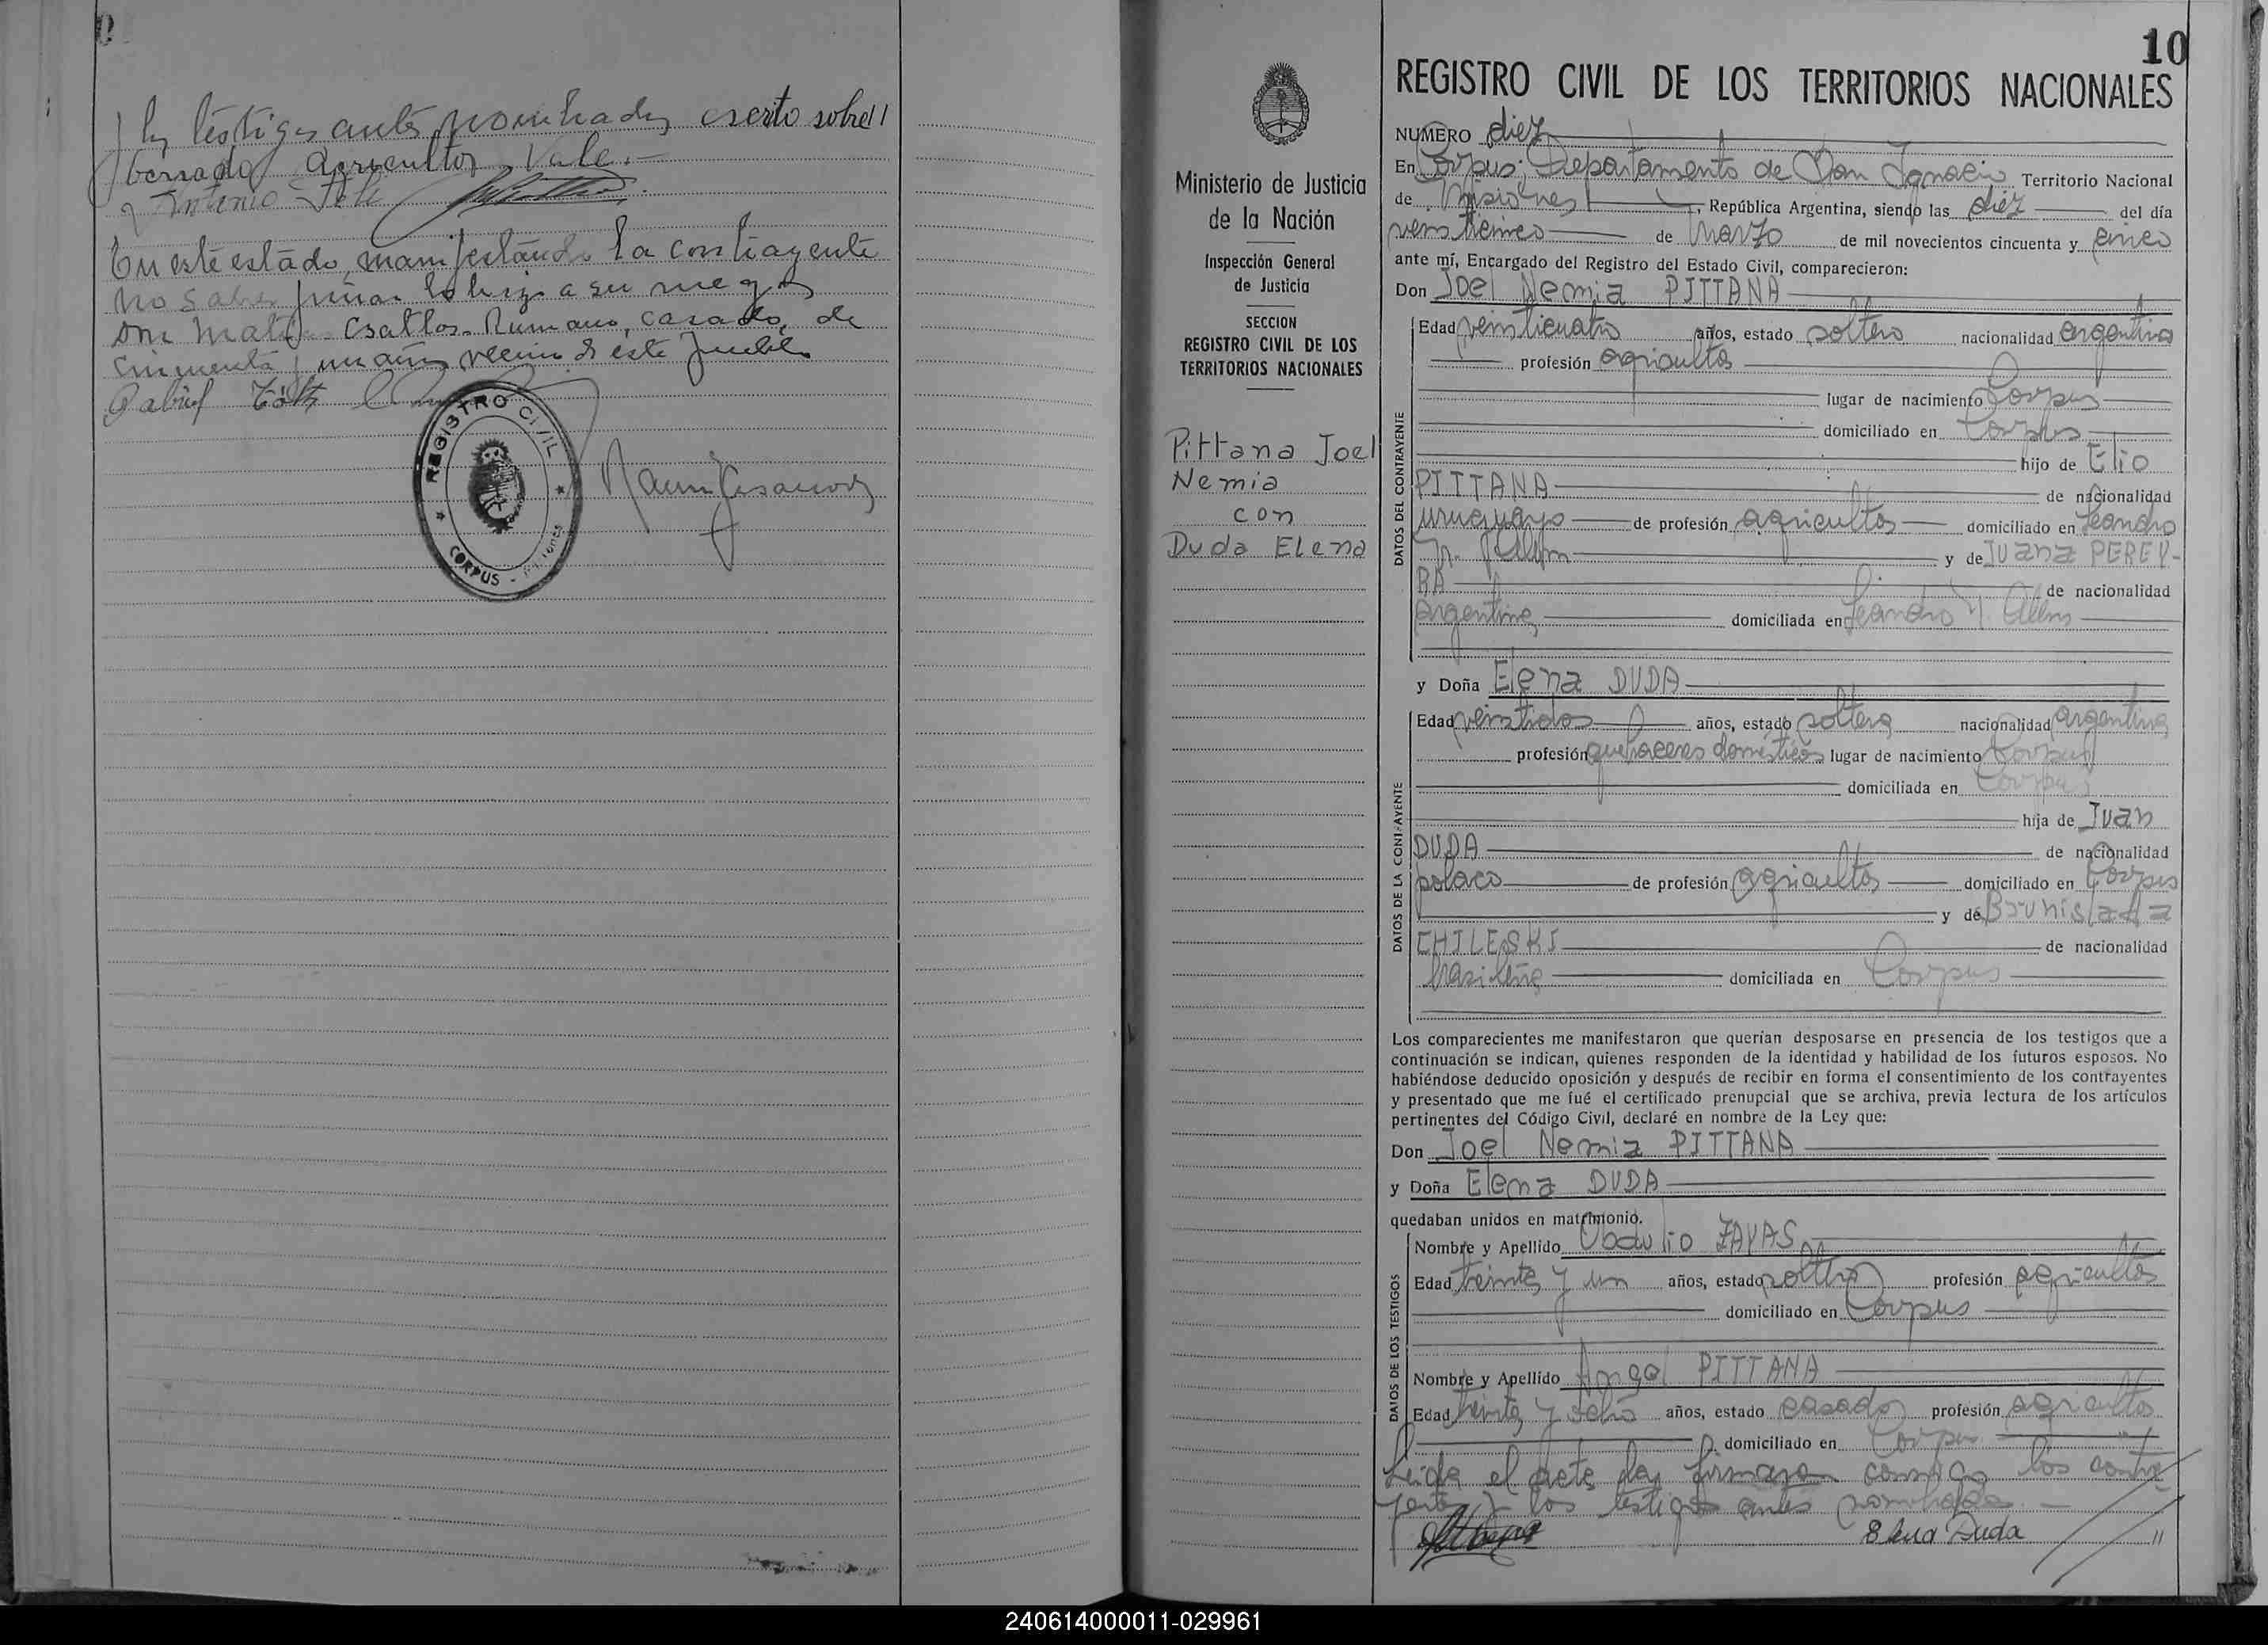 y los testigos antes nombrados escrito sobre//
berrado Agricultor Vale.-
Antonio
En este estado, manifestando la contrayente
no saber firmar lo hizo a su ruego
don Csatlos Rumano, casado, de
cincuenta y un años vecino de este pueblo
Gabriel Toth
REGISTRO CIVIL
CORPUS - Misiones
Ministerio de Justicia
de la Nación
Inspección General
de Justicia
SECCION
REGISTRO CIVIL DE LOS
TERRITORIOS NACIONALES
Pittana Joel
Nemia
con
Duda Elena
10
REGISTRO CIVIL DE LOS TERRITORIOS NACIONALES
NUMERO diez
En Corpus; Departamento de San Ignacio Territorio Nacional
de Misiones, República Argentina, siendo las diez del día
veinticinco de Marzo de mil novecientos cincuenta y cinco
ante mí, Encargado del Registro del Estado Civil, comparecieron:
Don Joel Nemia PITTANA
DATOS DEL CONTRAYENTE
Edad veinticuatro años, estado soltero nacionalidad argentina
profesión agricultor
lugar de nacimiento Corpus
domiciliado en Corpus
hijo de Elio
PITTANA de nacionalidad
uruguayo de profesión agricultor domiciliado en Leandro
N. Alem y de Juana PEREY-
RA de nacionalidad
argentina domiciliada en Leandro N. Alem
y Doña Elena DUDA
DATOS DE LA CONTRAYENTE
Edad veintidos años, estado soltera nacionalidad argentina
profesión quehaceres domésticos lugar de nacimiento Corpus
domiciliada en Corpus
hija de Juan
DUDA de nacionalidad
polaco de profesión agricultor domiciliado en Corpus
y de Brunislada
CHILESKI de nacionalidad
brasileña domiciliada en Corpus
Los comparecientes me manifestaron que querían desposarse en presencia de los testigos que a
continuación se indican, quienes responden de la identidad y habilidad de los futuros esposos. No
habiéndose deducido oposición y después de recibir en forma el consentimiento de los contrayentes
y presentado que me fué el certificado prenupcial que se archiva, previa lectura de los artículos
pertinentes del Código Civil, declaré en nombre de la Ley que:
Don Joel Nemia PITTANA
y Doña Elena DUDA
quedaban unidos en matrimonio.
DATOS DE LOS TESTIGOS
Nombre y Apellido Obdulio ZAYAS
Edad treinta y un años, estado soltero profesión agricultor
domiciliado en Corpus
Nombre y Apellido Angel PITTANA
Edad treinta y ocho años, estado casado profesión agricultor
domiciliado en Corpus
Leida el acta la firmaron conmigo los contra-
yentes y los testigos antes nombrados.-
Elena Duda //
240614000011-029961